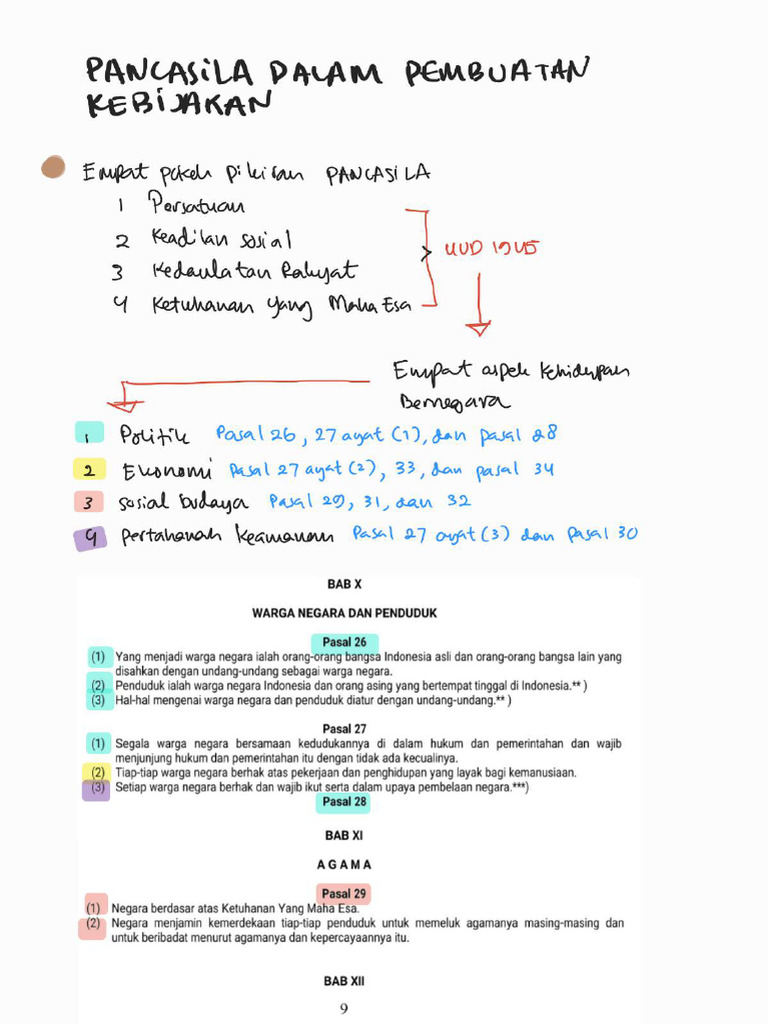 PANCASILA DALAM PEMBUATAN
KEBIJAKAN
Empat pokok pikiran PANCASILA
1 Persatuan
2 Keadilan sosial
3 Kedaulatan Rakyat
4 Ketuhanan Yang Maha Esa
UUD 1945
Empat aspek kehidupan
Bernegara
1 Politik Pasal 26, 27 ayat (1), dan pasal 28
2 Ekonomi Pasal 27 ayat (2), 33, dan pasal 34
3 sosial budaya Pasal 29, 31, dan 32
4 pertahanan keamanan Pasal 27 ayat (3) dan pasal 30
BAB X
WARGA NEGARA DAN PENDUDUK
Pasal 26
(1) Yang menjadi warga negara ialah orang-orang bangsa Indonesia asli dan orang-orang bangsa lain yang
disahkan dengan undang-undang sebagai warga negara.
(2) Penduduk ialah warga negara Indonesia dan orang asing yang bertempat tinggal di Indonesia.** )
(3) Hal-hal mengenai warga negara dan penduduk diatur dengan undang-undang.** )
Pasal 27
(1) Segala warga negara bersamaan kedudukannya di dalam hukum dan pemerintahan dan wajib
menjunjung hukum dan pemerintahan itu dengan tidak ada kecualinya.
(2) Tiap-tiap warga negara berhak atas pekerjaan dan penghidupan yang layak bagi kemanusiaan.
(3) Setiap warga negara berhak dan wajib ikut serta dalam upaya pembelaan negara.***)
Pasal 28
BAB XI
A G A M A
Pasal 29
(1) Negara berdasar atas Ketuhanan Yang Maha Esa.
(2) Negara menjamin kemerdekaan tiap-tiap penduduk untuk memeluk agamanya masing-masing dan
untuk beribadat menurut agamanya dan kepercayaannya itu.
BAB XII
9